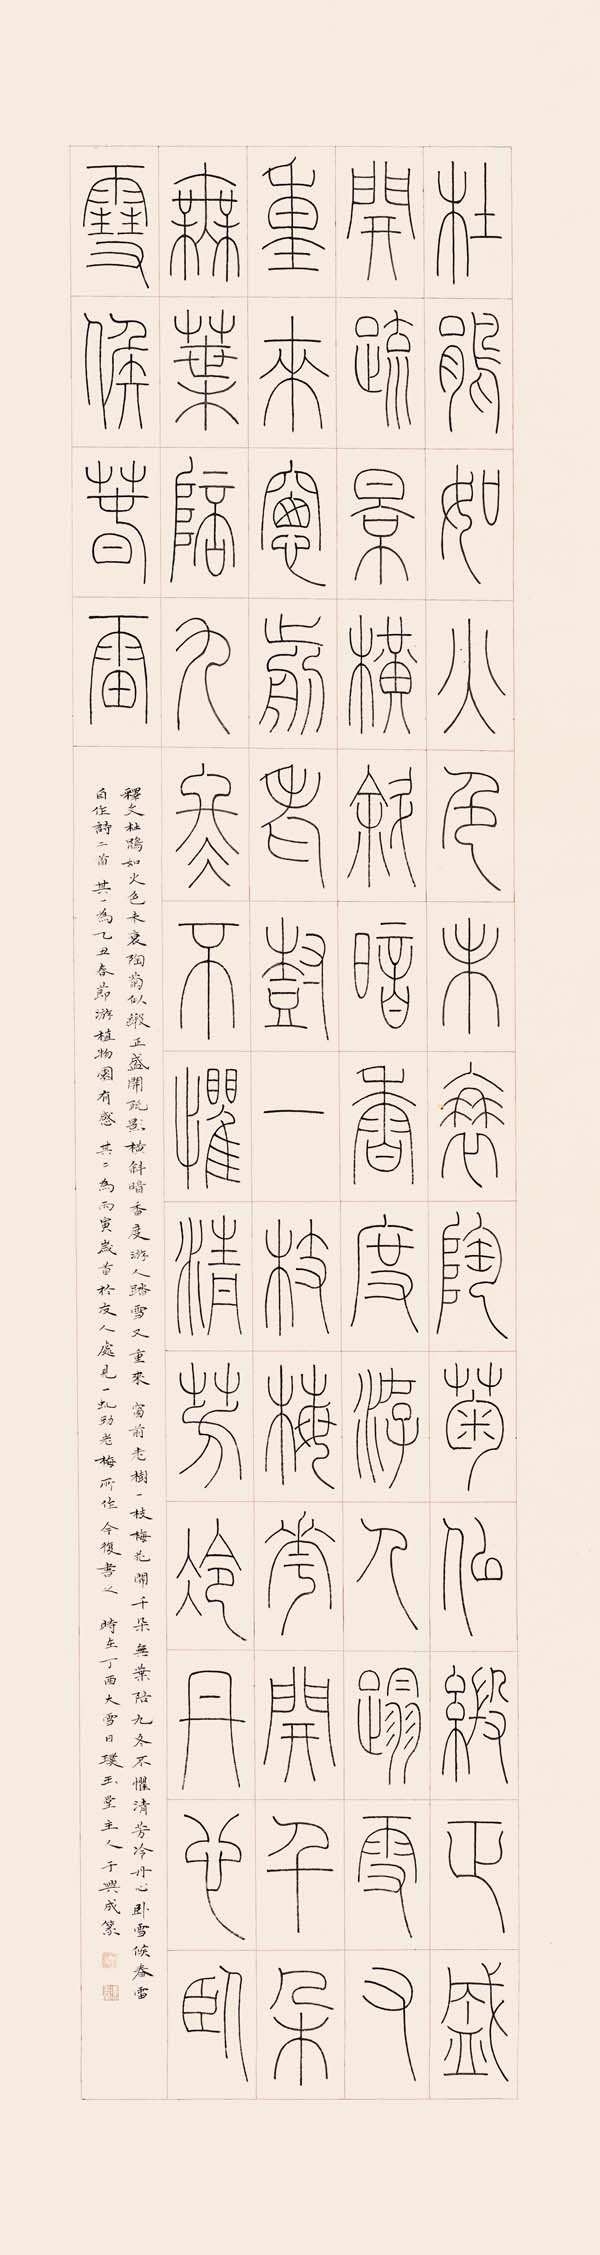 杜鵑如火色未衰陶菊似緞正盛
開疏景橫斜暗香度游人蹋雪又
重來窗前老樹一枝梅花開千朵
無葉陪九冬不懼清芳冷丹心臥
雪候春雷
釋文杜鵑如火色未衰陶菊似緞正盛開疏影橫斜暗香度游人踏雪又重來 窗前老樹一枝梅花開千朵無葉陪九冬不懼清芳冷丹心臥雪候春雷
自作詩二首 其一為乙丑春節游植物園有感 其二為丙寅歲首於友人處見一虬勁老梅所作 今復書之 時在丁酉大雪日璞玉堂主人于興成篆